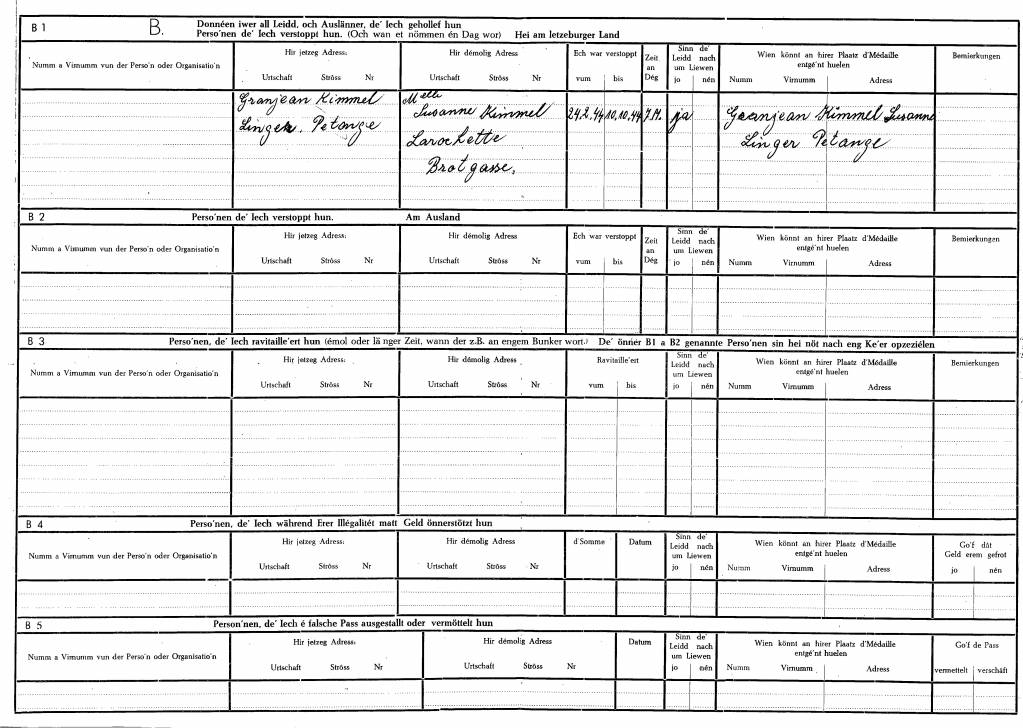 B 1 B. Donnéen iwer all Leidd, och Auslänner, de' Iech gehollef hun
Perso'nen de' Iech verstoppt hun. (Och wan et nömmen én Dag wor) Hei am letzeburger Land
Numm a Virnumm vun der Perso'n oder Organisatio'n
Hir jetzeg Adress:
Urtschaft Ströss Nr
Hir démolig Adress
Urtschaft Ströss Nr
Ech war verstoppt
vum bis
Zeit
an
Dég
Sinn de'
Leidd nach
um Liewen
jo nén
Wien könnt an hirer Plaatz d'Médaille
entgé'nt huelen
Numm Virnumm Adress
Bemierkungen
Granjean Kimmel
Linger. Petange
Melle
Susanne Kimmel
Larochette
Brotgasse,
24.2.44 10.10.44 7.M. ja
Granjean Kimmel Susanne
Linger Petange
B 2 Perso'nen de' Iech verstoppt hun. Am Ausland
Numm a Virnumm vun der Perso'n oder Organisatio'n
Hir jetzeg Adress:
Urtschaft Ströss Nr
Hir démolig Adress
Urtschaft Ströss Nr
Ech war verstoppt
vum bis
Zeit
an
Dég
Sinn de'
Leidd nach
um Liewen
jo nén
Wien könnt an hirer Plaatz d'Médaille
entgé'nt huelen
Numm Virnumm Adress
Bemierkungen
B 3 Perso'nen, de' Iech ravitaille'ert hun (émol oder länger Zeit, wann der z.B. an engem Bunker wort.) De' önnier B1 a B2 genannte Perso'nen sin hei nöt nach eng Ke'er opzeziélen
Numm a Virnumm vun der Perso'n oder Organisatio'n
Hir jetzeg Adress:
Urtschaft Ströss Nr
Hir démolig Adress
Urtschaft Ströss Nr
Ravitaille'ert
vum bis
Sinn de'
Leidd nach
um Liewen
jo nén
Wien könnt an hirer Plaatz d'Médaille
entgé'nt huelen
Numm Virnumm Adress
Bemierkungen
B 4 Perso'nen, de' Iech während Erer Illégalitét matt Geld önnerstötzt hun
Numm a Virnumm vun der Perso'n oder Organisatio'n
Hir jetzeg Adress:
Urtschaft Ströss Nr
Hir démolig Adress
Urtschaft Ströss Nr
d'Somme
Datum
Sinn de'
Leidd nach
um Liewen
jo nén
Wien könnt an hirer Plaatz d'Médaille
entgé'nt huelen
Numm Virnumm Adress
Go'f dât
Geld erem gefrot
jo nén
B 5 Person'nen, de' Iech é falsche Pass ausgestallt oder vermöttelt hun
Numm a Virnumm vun der Perso'n oder Organisatio'n
Hir jetzeg Adress:
Urtschaft Ströss Nr
Hir démolig Adress
Urtschaft Ströss Nr
Datum
Sinn de'
Leidd nach
um Liewen
jo nén
Wien könnt an hirer Plaatz d'Médaille
entgé'nt huelen
Numm Virnumm Adress
Go'f de Pass
vermettelt verschâft